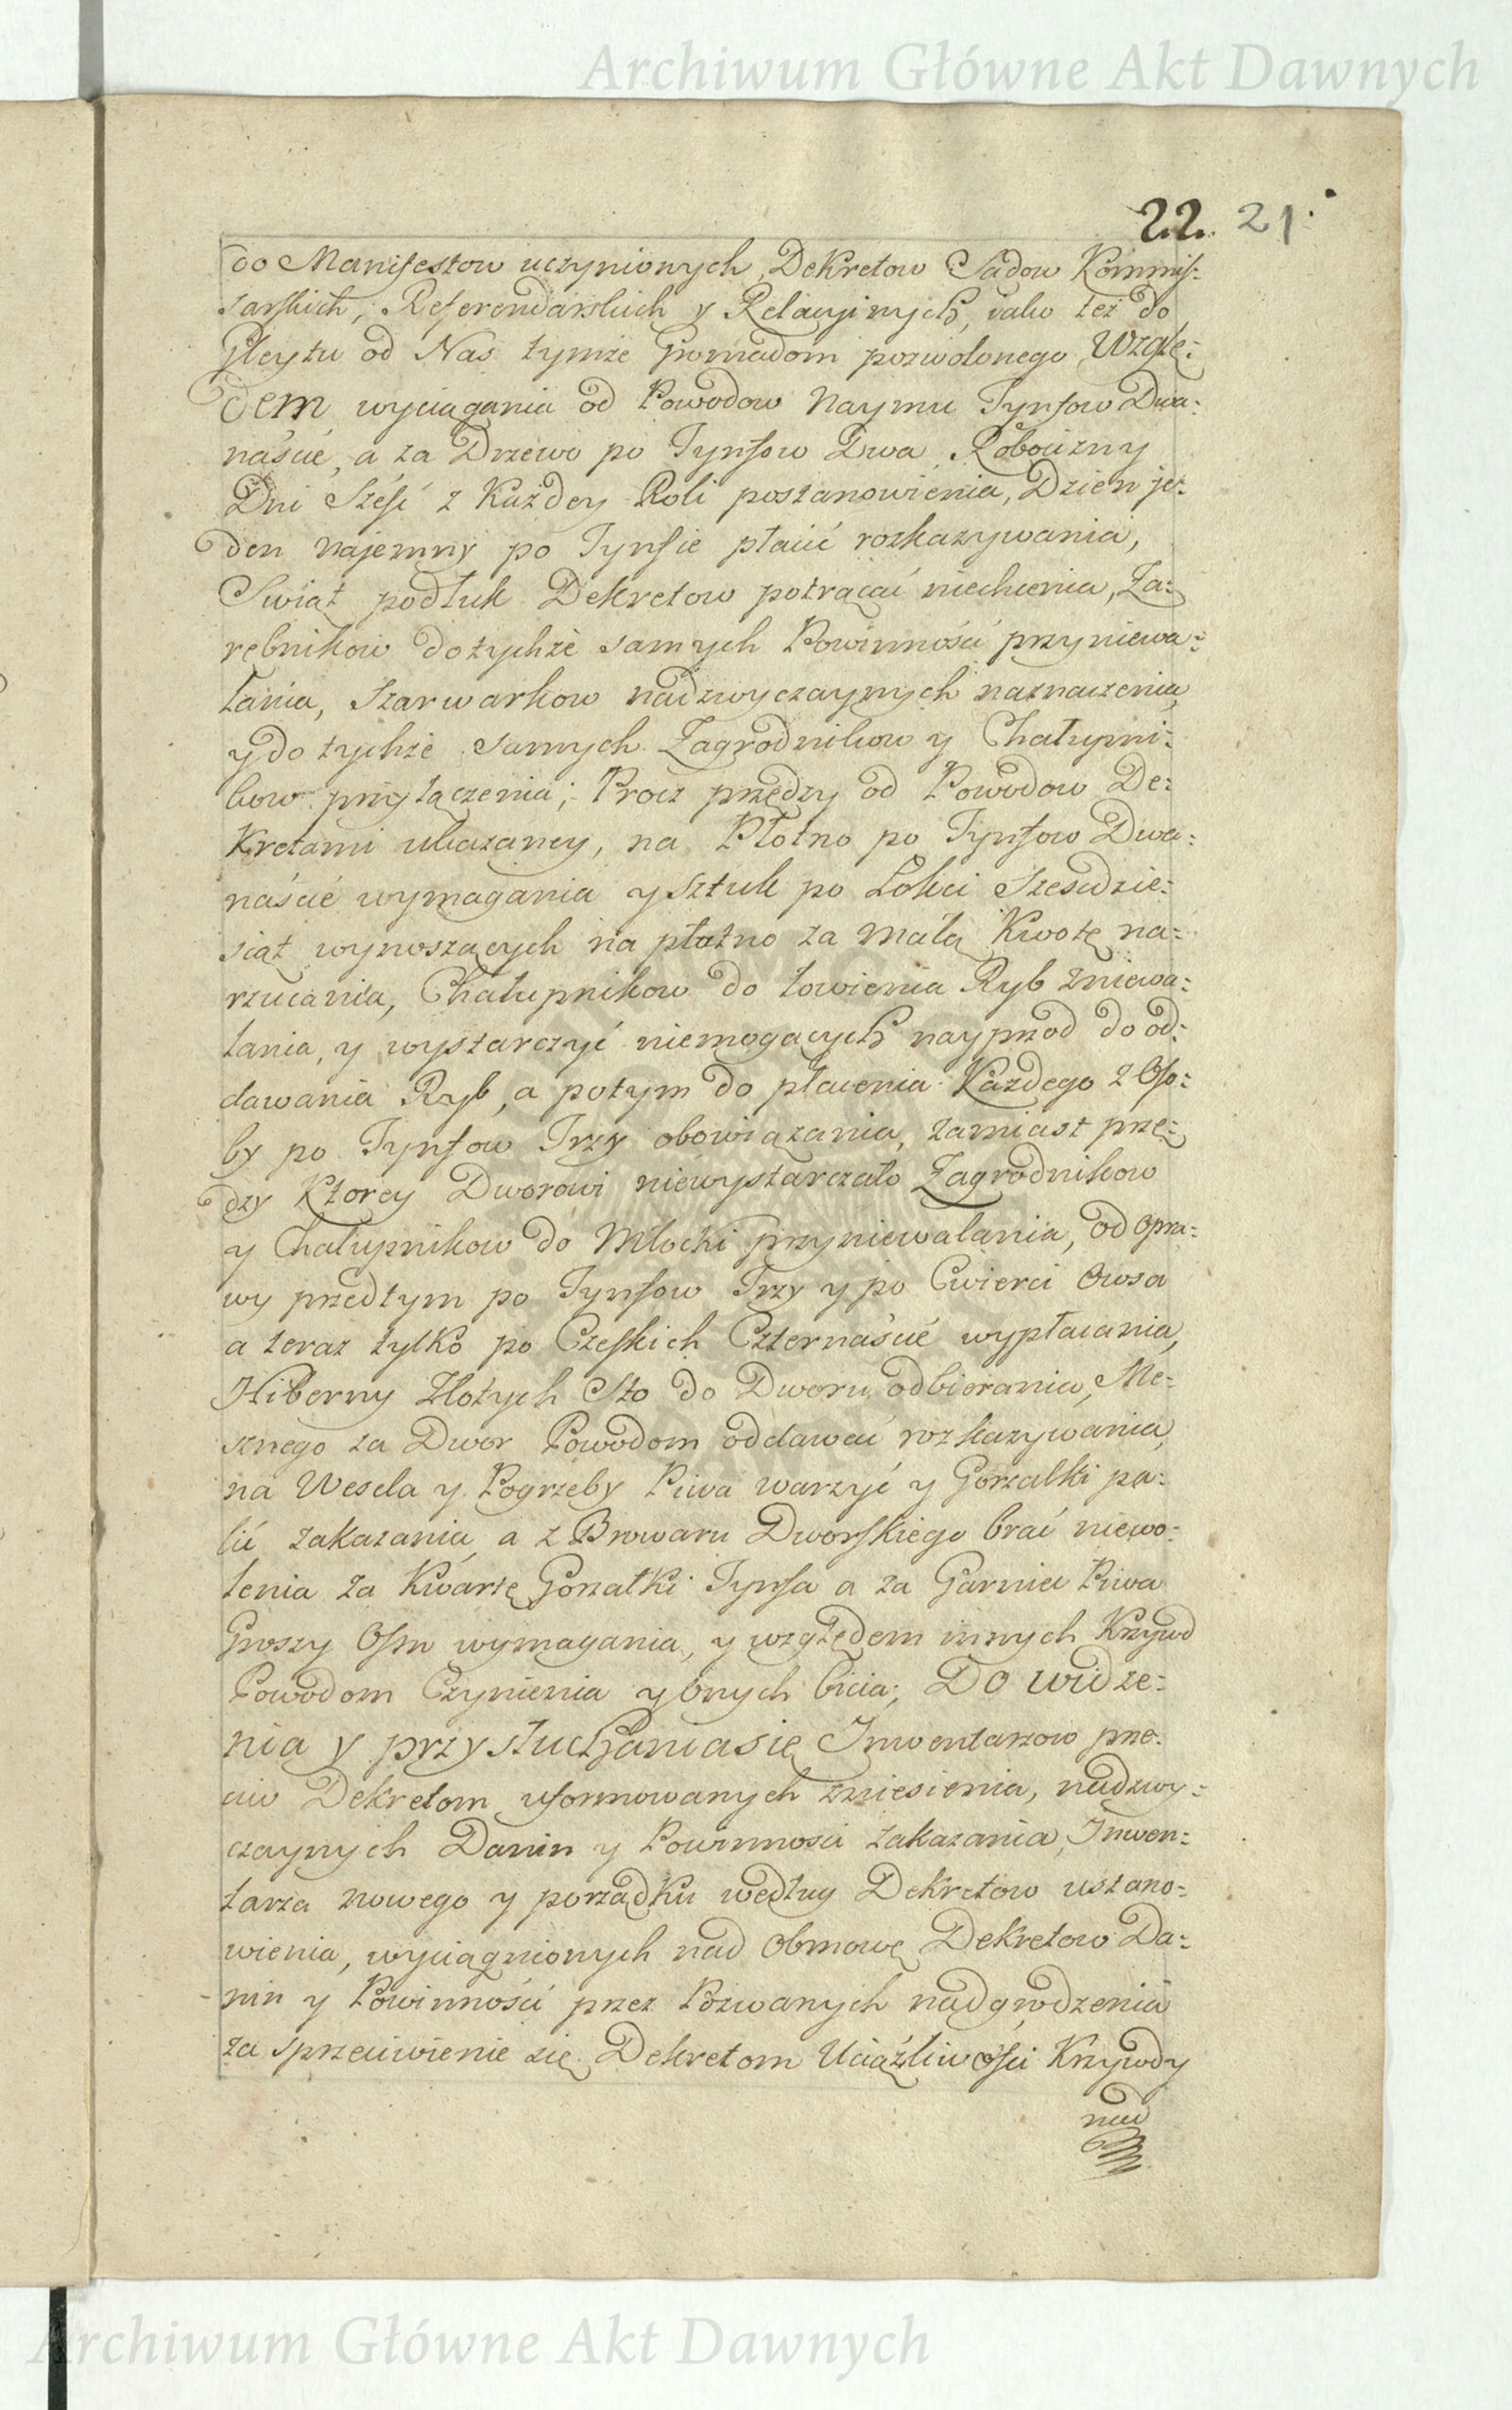 Archiwum Główne Akt Dawnych
22. 21.
do Manifestow uczynionych, Dekretow Sądow Kommis:
sarskich, Referendarskich y Relacyinych, iako też do
Gleytu od Nas tymże Gromadom pozwolonego Wzglę:
dem wyciągania od Powodow Naymu Tynfow Dwa:
naście, a za Drzewo po Tynfow Dwa, Robocizny
Dni Sześć z Każdey Roli postanowienia, Dzien je:
den najemny po Tynfie płacić rozkazywania,
Swiąt podług Dekretow potrącać niechcenia, Za:
rębnikow do tychże samych Powinności przyniewa:
lania, Szarwarkow nadzwyczaynych naznaczenia,
y do tychże samych Zagrodnikow y Chałupni:
kow przyłączenia; Procz przędzy od Powodow De:
kretami ukazaney, na Płotno po Tynfow Dwa:
naście wymagania y Sztuk po Łokci Szescdzie:
siąt wynoszących na płotno za małą Kwotę na:
rzucania, Chałupnikow do łowienia Ryb zniewa:
lania, y wystarczyć niemogących nayprzod do od:
dawania Ryb, a potym do płacenia Każdego z Oso:
by po Tynfow Trzy obowiązania, zamiast przę:
dzy Ktorey Dworowi niewystarczało Zagrodnikow
y Chałupnikow do Młocki przyniewalania, od opra:
wy przedtym po Tynfow Trzy y po Cwierci Owsa
a teraz tylko po Czeskich Czternaście wypłacania,
Hiberny Złotych Sto do Dworu odbierania, Me:
sznego za Dwor Powodom oddawać rozkazywania,
na Wesela y Pogrzeby Piwa warzyć y Gorzałki pa:
lić zakazania, a z Browaru Dworskiego brać niewo:
lenia za Kwartę Gorzałki Tynfa a za Garniec Piwa
Groszy Osm wymagania, y względem innych Krzywd
Powodom Czynienia y onych bicia; Do widze:
nia y przysłuchania się Inwentarzow prze:
ciw Dekretom uformowanych zniesienia, nadzwy:
czaynych Danin y Powinności zakazania, Inwen:
tarza nowego y porządku według Dekretow ustano:
wienia, wyciągnionych nad Obmowę Dekretow Da:
nin y Powinności przez Pozwanych nadgrodzenia
za sprzeciwienie się Dekretom Uciążliwości Krzywdy
nad
Archiwum Główne Akt Dawnych